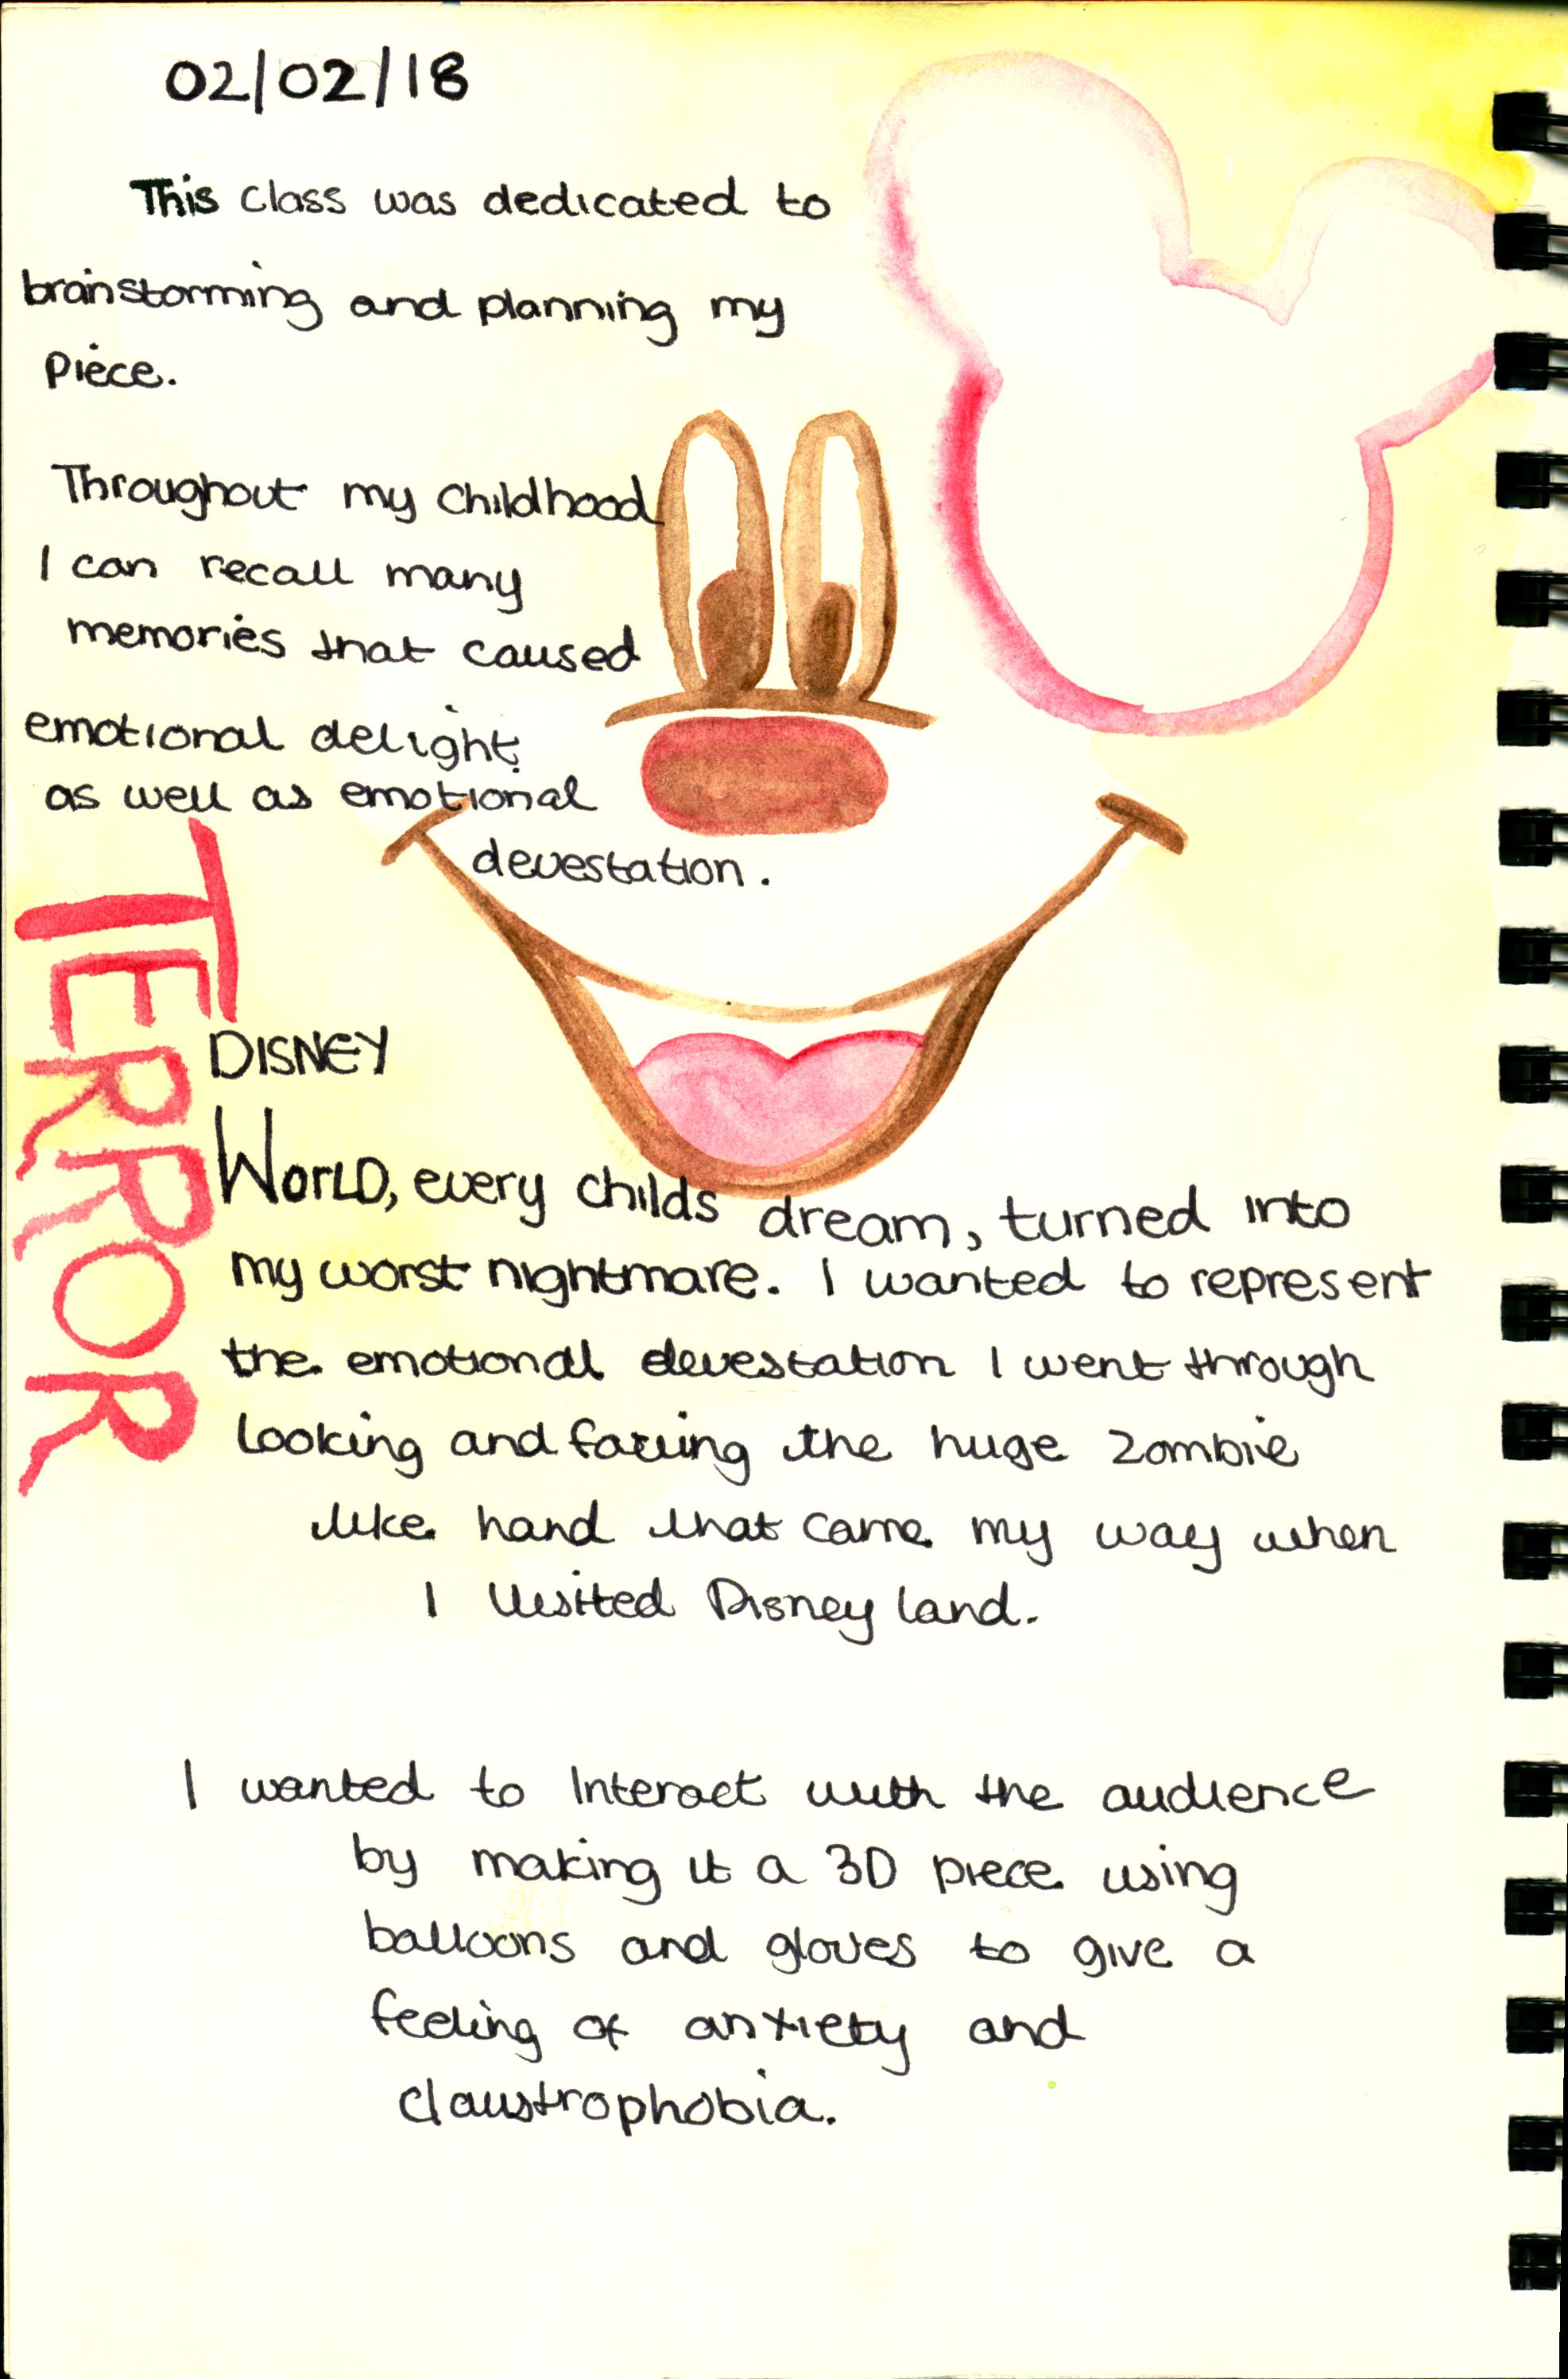 02/02/18
This class was dedicated to
brainstorming and planning my
piece.
Throughout my childhood
I can recall many
memories that caused
emotional delight
as well as emotional
devestation.
TERROR
DISNEY
WORLD, every childs dream, turned into
my worst nightmare. I wanted to represent
the emotional devestation I went through
looking and facing the huge zombie
like hand that came my way when
I visited Disney land.
I wanted to Interact with the audience
by making it a 3D piece using
balloons and gloves to give a
feeling of anxiety and
claustrophobia.